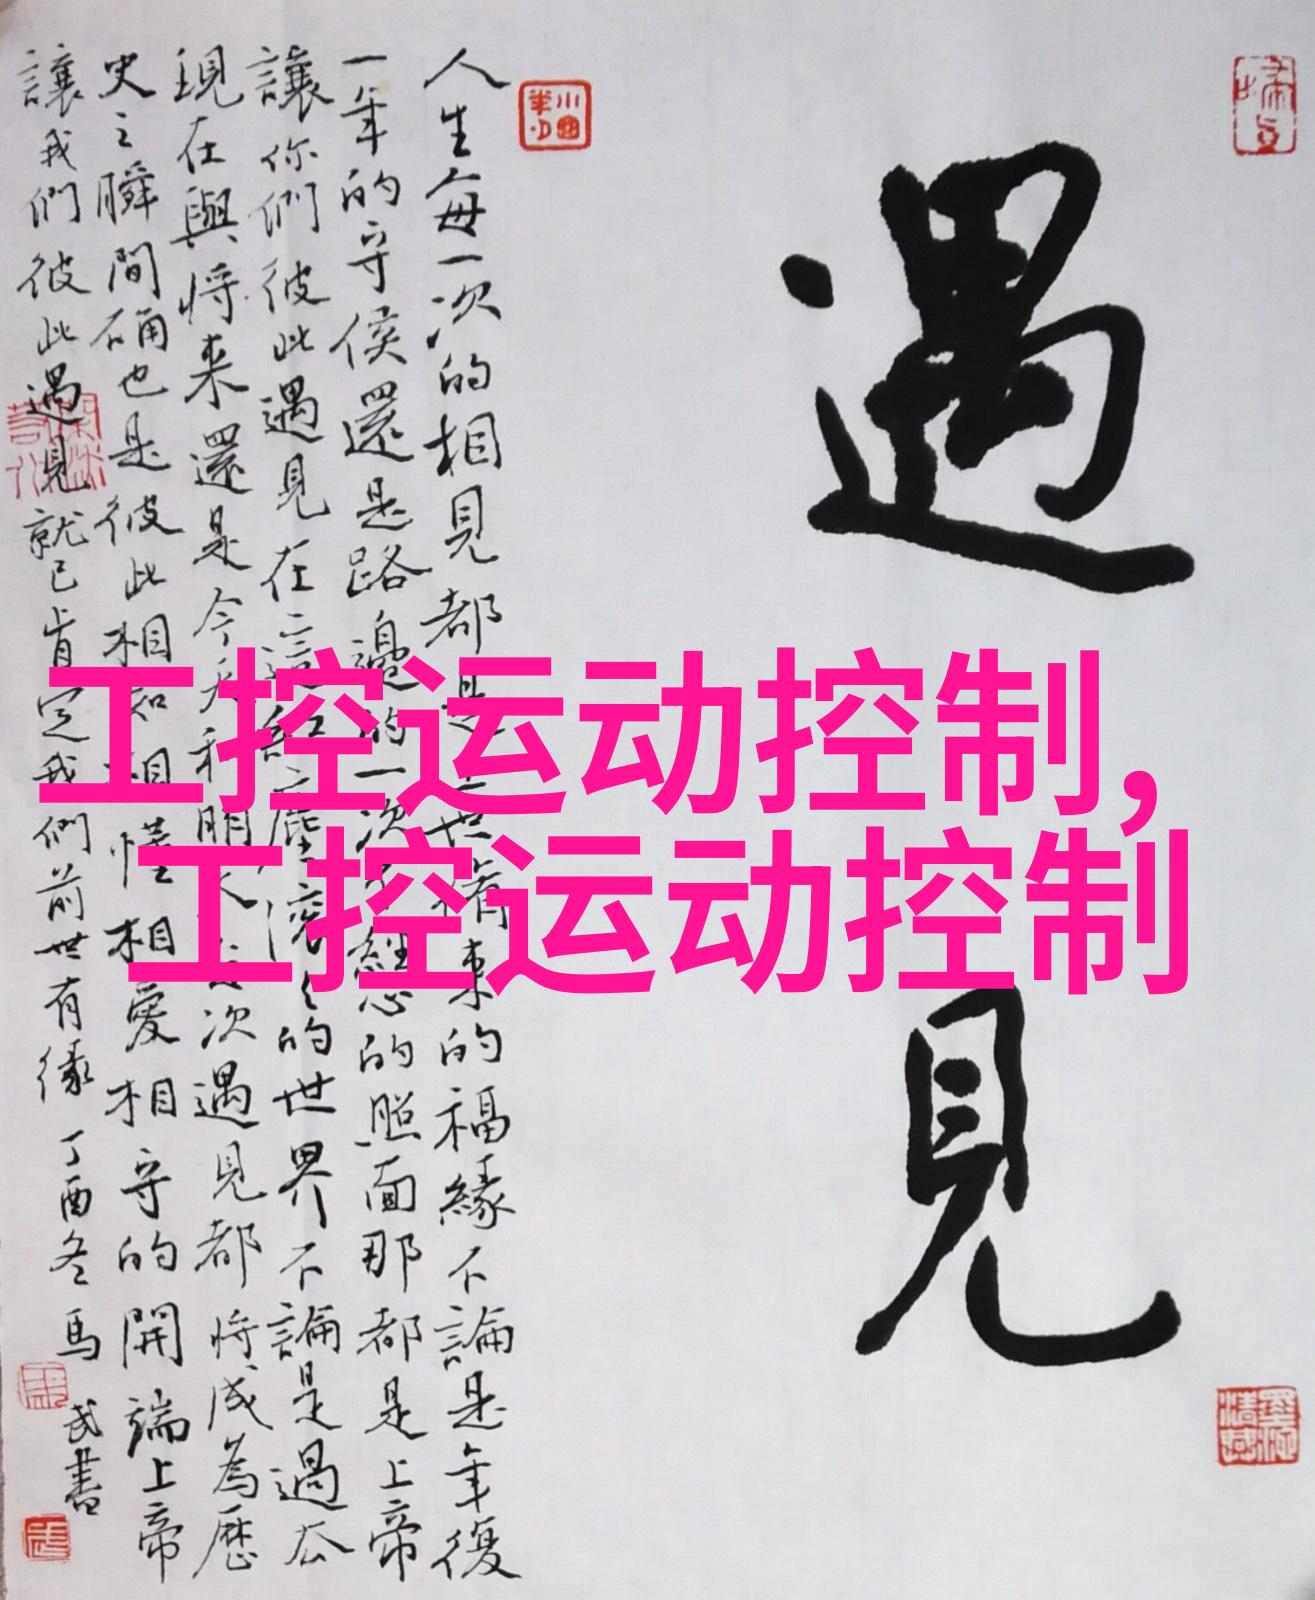 遇見
人生每一次的相見都是上世修来的福緣不論是年復
一年的守侯還是路邊的一次不經意的照面那都是上帝
讓你們彼此遇見在這紅塵滚滚的世界不論是過去
現在與将来還是今天和明天每次遇見都将成為歷
史之瞬間确也是彼此相知相惜相愛相守的開端上帝
讓我們彼此遇見就已肯定我們前世有缘 丁酉冬馬武書
工控运动控制,
工控运动控制